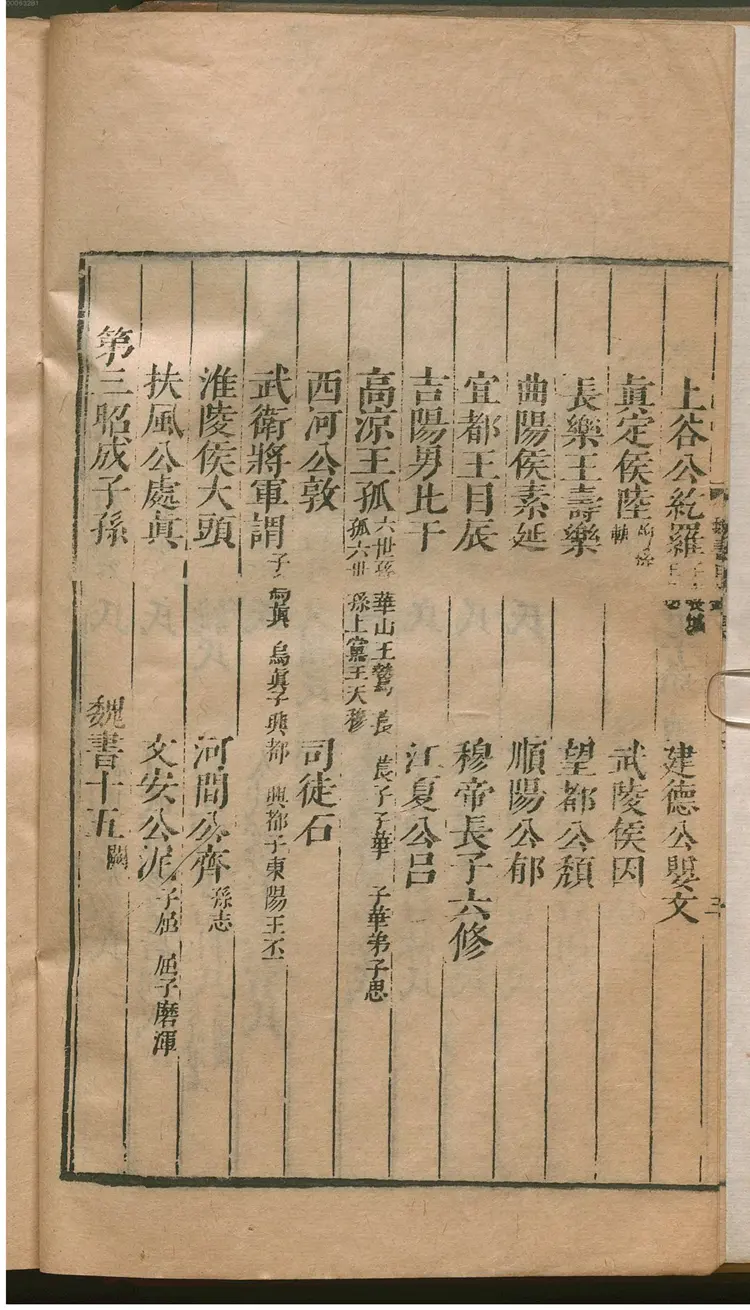 上谷公紇羅　建德公嬰文
眞定侯陸　武陵侯因
長樂王壽樂　望都公頹
曲陽侯素延　順陽公郁
宜都王目辰　穆帝長子六修
吉陽男比干　江夏公呂
高涼王孤　六世孫華山王鷙　長子華　子華弟子思
孤六世孫上黨王天穆
西河公敦　司徒石
武衛將軍謂　子烏眞　烏眞子興都　興都子東陽王丕
淮陵侯大頭　河間公齊　孫志
扶風公處眞　文安公泥　子屈　屈子磨渾
第三昭成子孫　魏書十五　闕